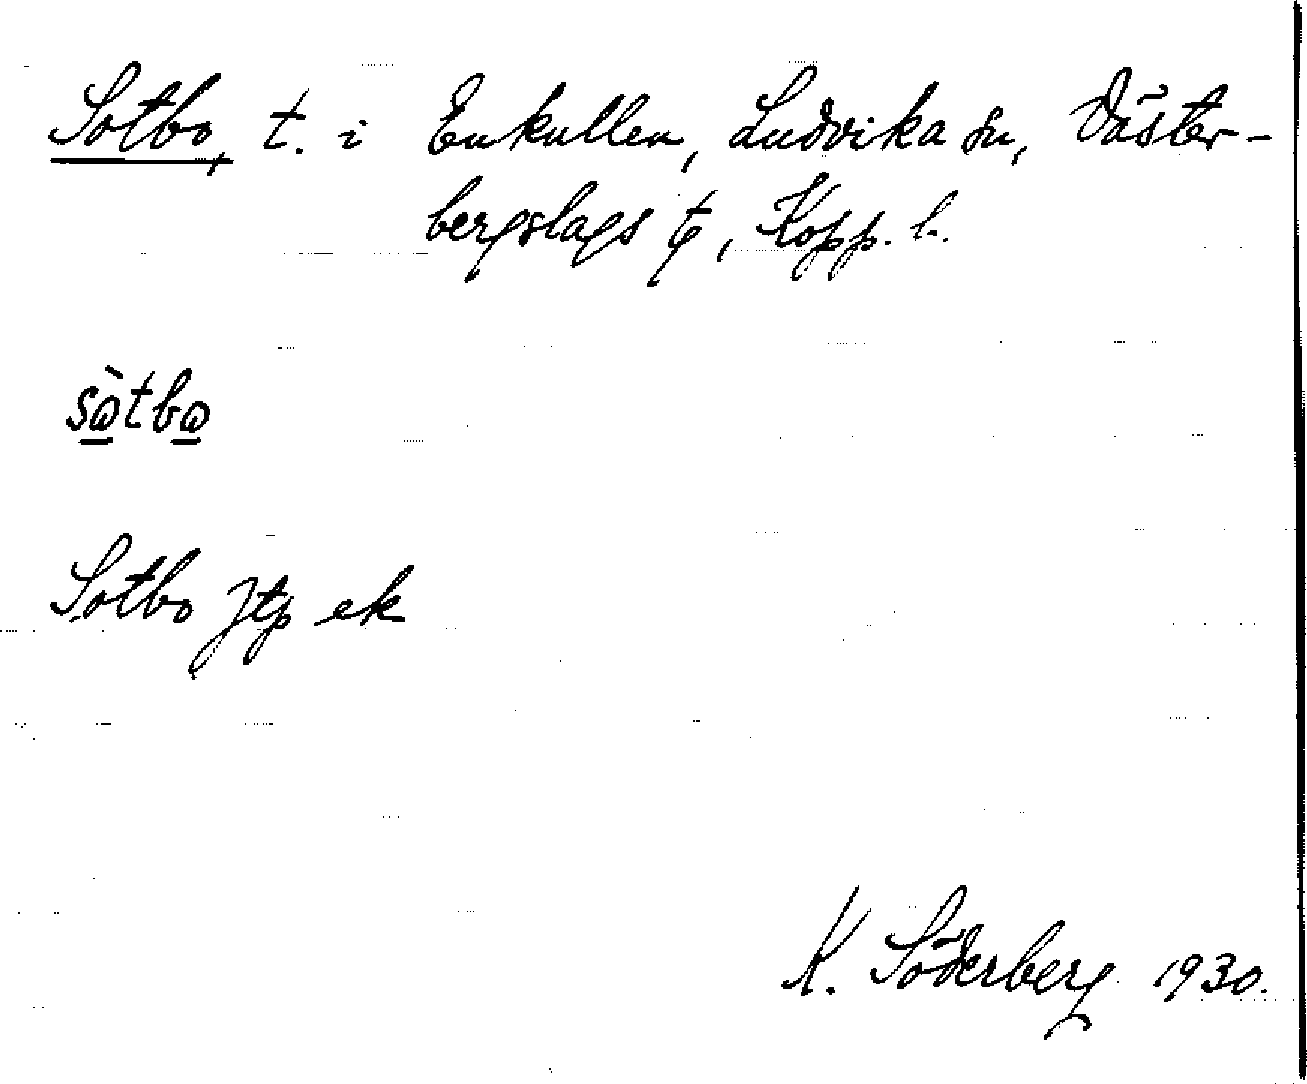 Sotbo, t. i Enkullen, Ludvika sn, Väster-
bergslags tg, Kopp. l.
sò̲tbo̲
Sotbo Jtp ek
K. Söderberg 1930.